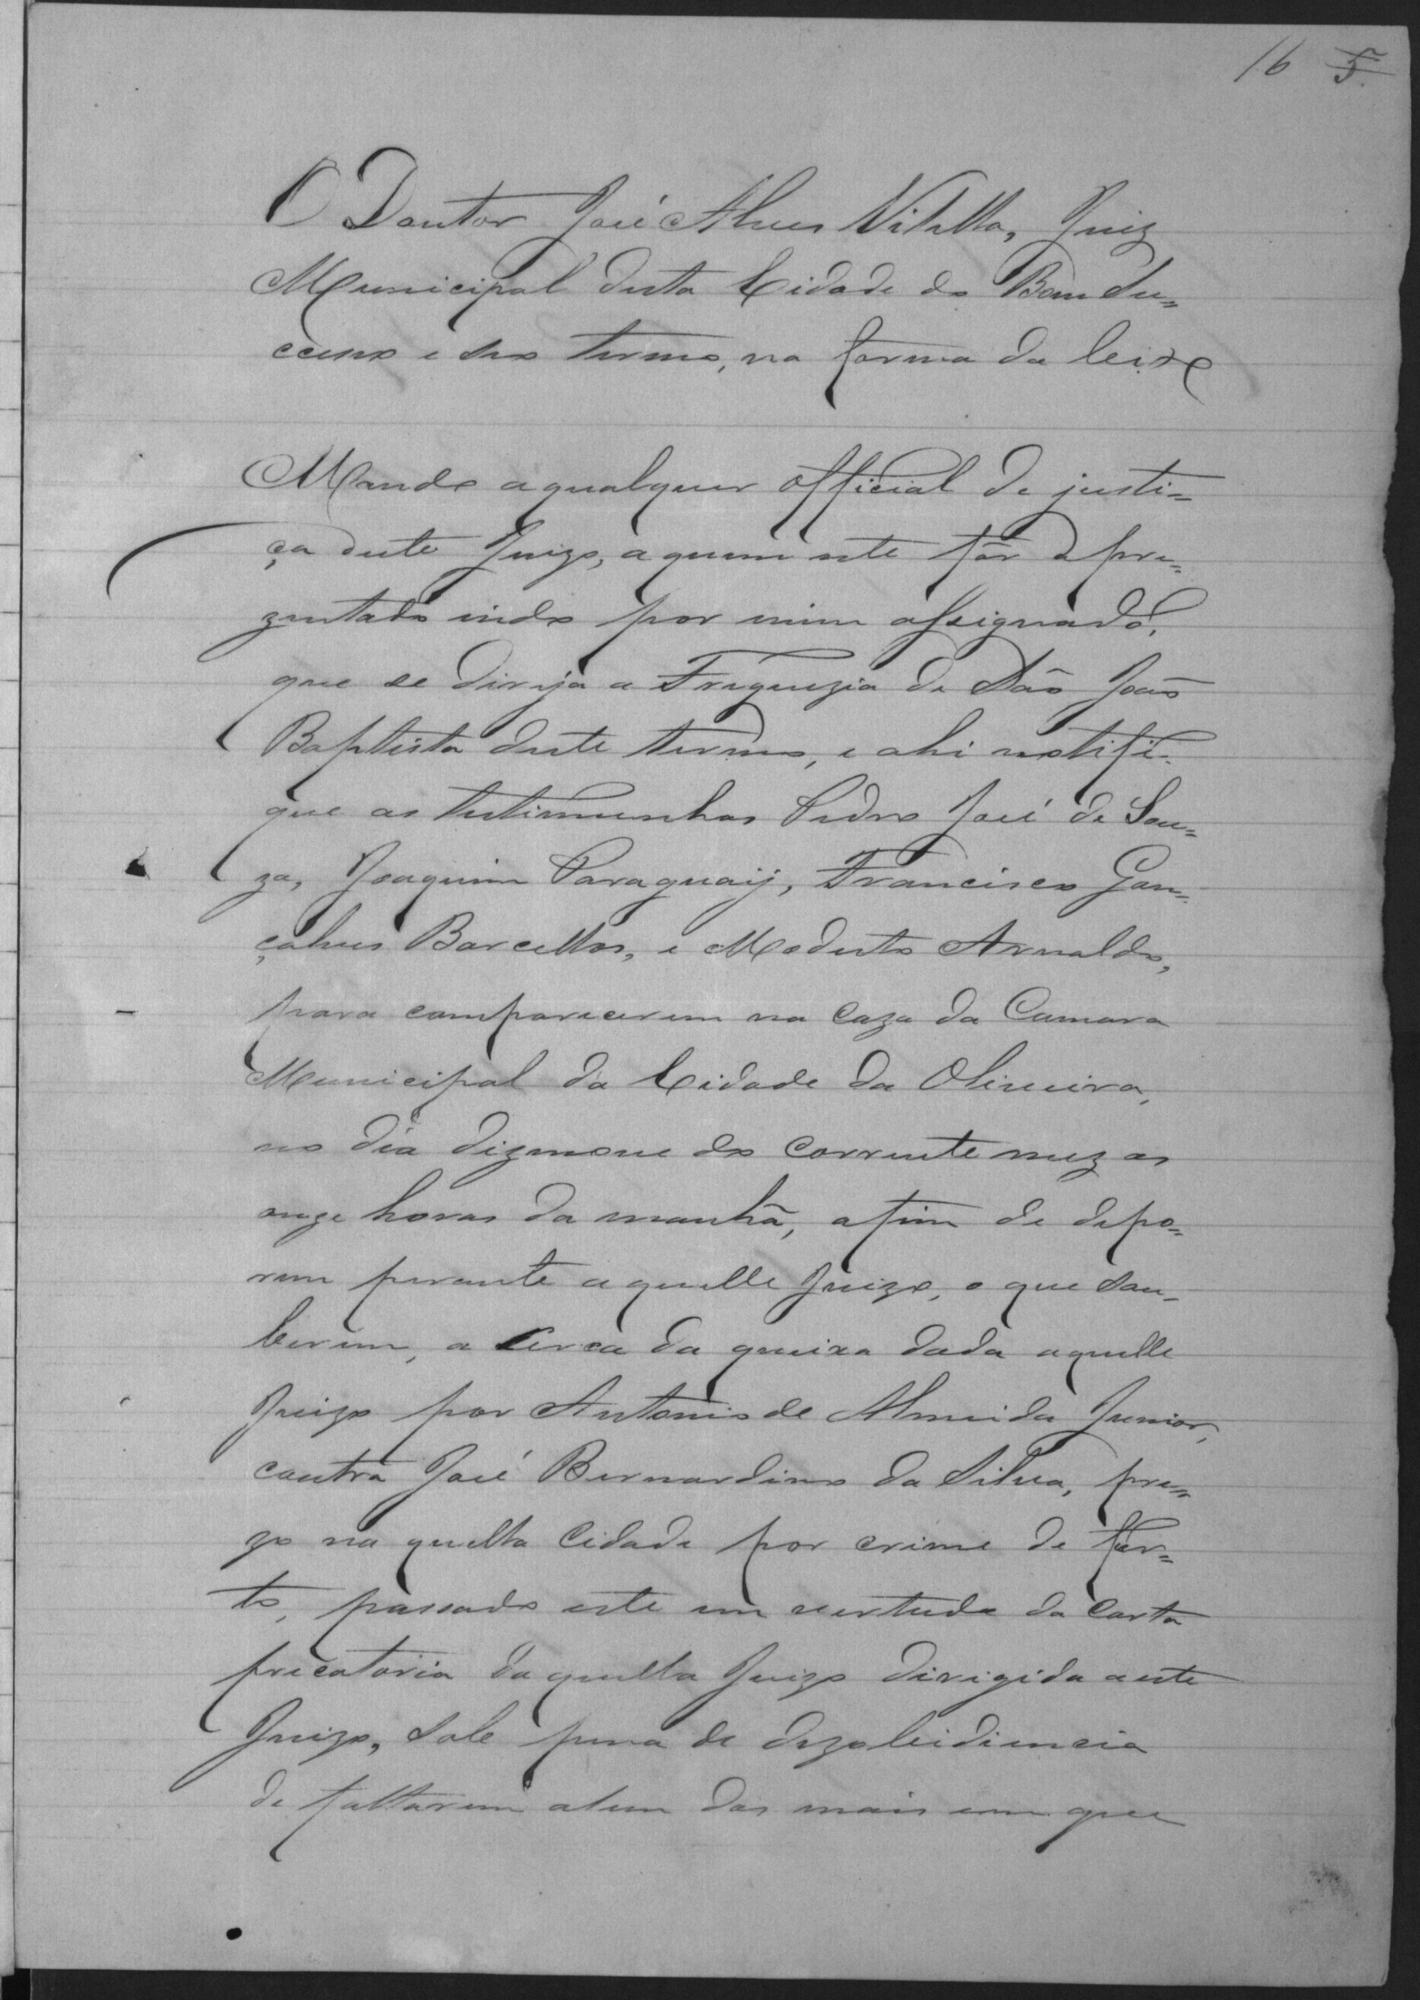 16 5.
O Doutor José Alves Vilella, Juiz
Municipal desta Cidade do Bom Su=
ccesso e seo termo, na forma da lei &
Mando a qualquer official de justi=
ça deste Juizo, a quem este fôr apre=
zentado indo por mim assignado,
que se dirija a Freguezia de São João
Baptista deste termo, e ahi notifi=
que as testimunhas Pedro José de Sou=
za, Joaquim Paraguaij, Francisco Gon=
çalves Barcellos, e Modesto Arnaldo,
para comparecerem na caza da Camara
Municipal da Cidade da Oliveira,
no dia dizenove do corrente mez as
onze horas da manhã, afim de depo=
rem perante aquelle Juizo, o que sou=
berem, a cerca da queixa dada aquelle
Juizo por Antonio de Almeida Junior,
contra José Bernardino da Silva, pre=
zo na quella cidade por crime de fur=
to, passado este em vertude da Carta
precatoria daquelle Juizo dirigida a este
Juizo, sob pena de dezobeidiencia
de faltarem alem das mais em que